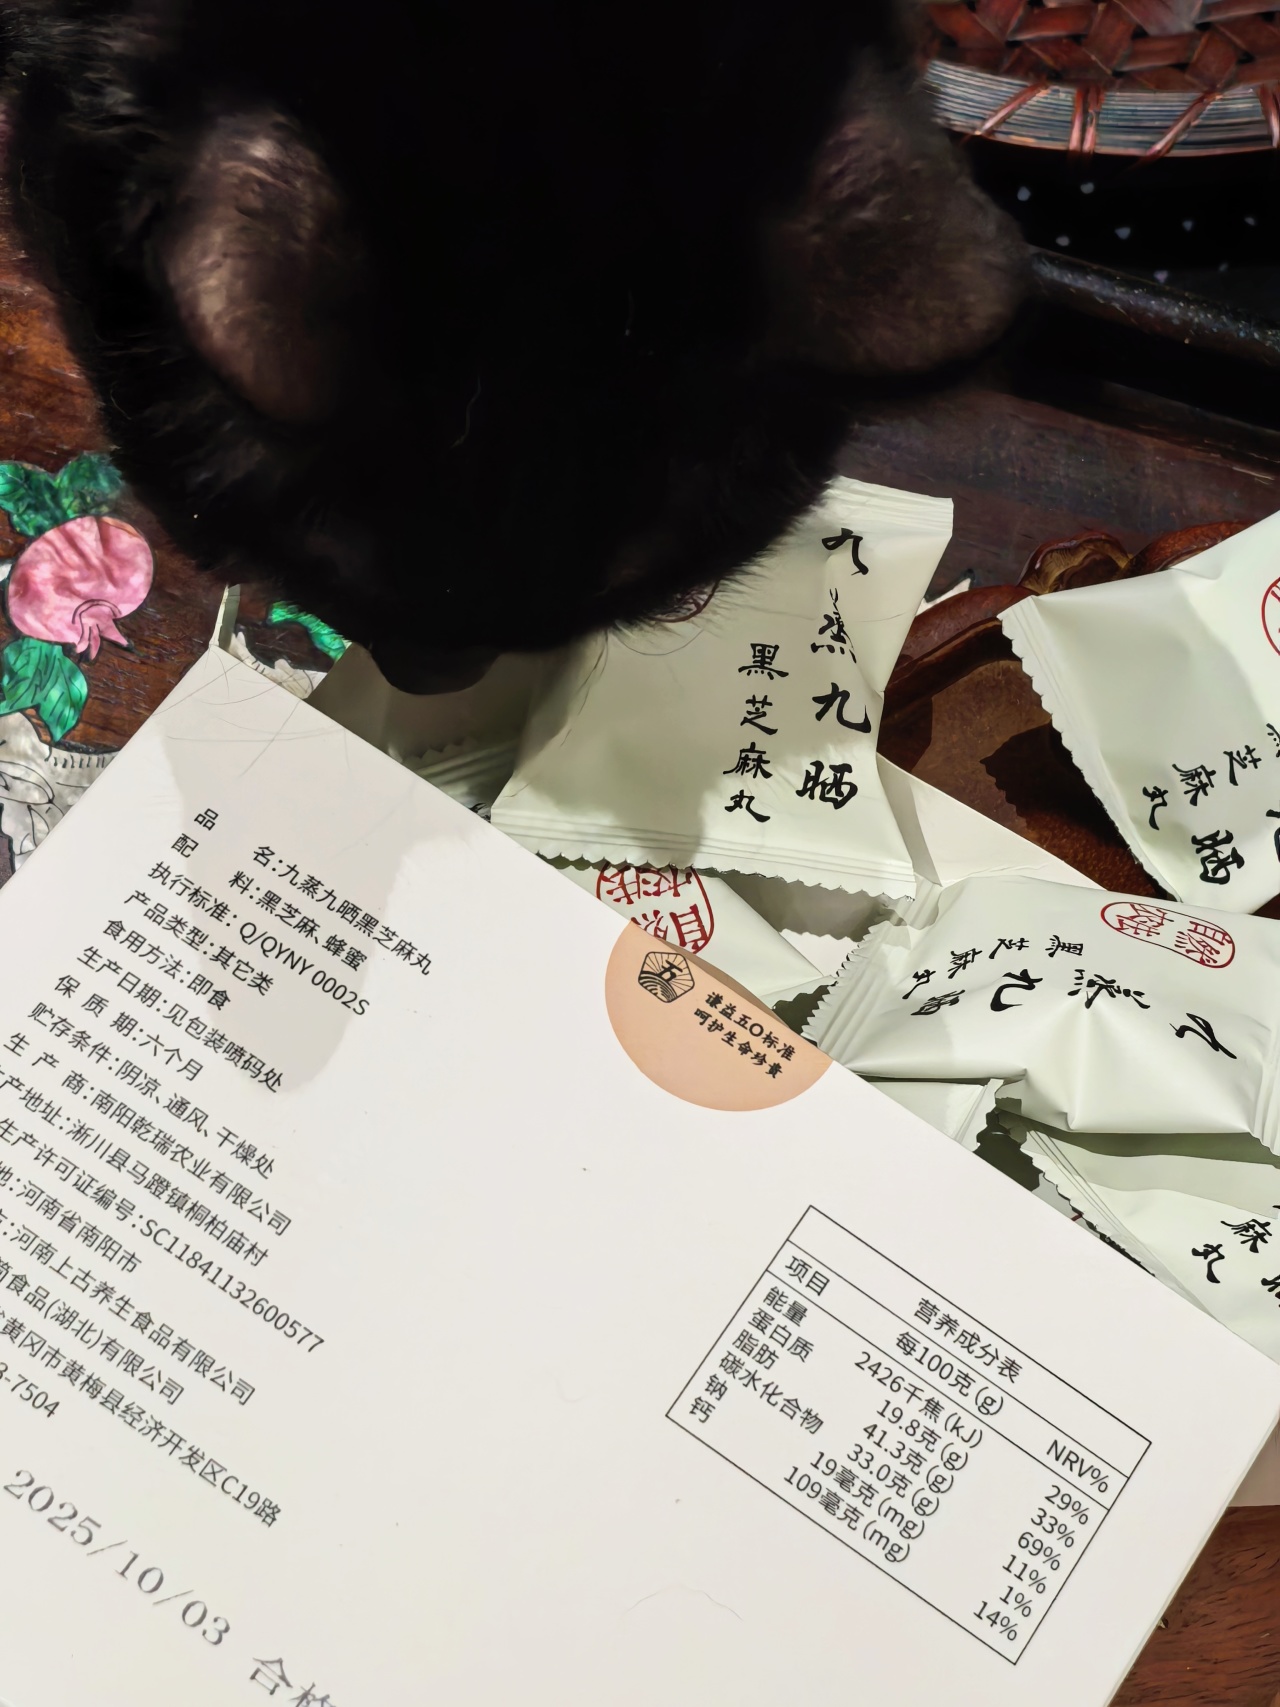 九蒸九晒
黑芝麻丸
芝麻丸
晒
自然
九蒸九晒
黑芝麻丸
自然
麻丸
谦益五〇标准
呵护生命珍贵
五
品名：九蒸九晒黑芝麻丸
配料：黑芝麻、蜂蜜
执行标准：Q/QYNY 0002S
产品类型：其它类
食用方法：即食
生产日期：见包装喷码处
保质期：六个月
贮存条件：阴凉、通风、干燥处
生产商：南阳乾瑞农业有限公司
产地址：淅川县马蹬镇桐柏庙村
生产许可证编号：SC11841132600577
地：河南省南阳市
：河南上古养生食品有限公司
食品(湖北)有限公司
黄冈市黄梅县经济开发区C19路
-7504
2025/10/03 合格
营养成分表
项目 每100克(g) NRV%
能量 2426千焦(kJ) 29%
蛋白质 19.8克(g) 33%
脂肪 41.3克(g) 69%
碳水化合物 33.0克(g) 11%
钠 19毫克(mg) 1%
钙 109毫克(mg) 14%